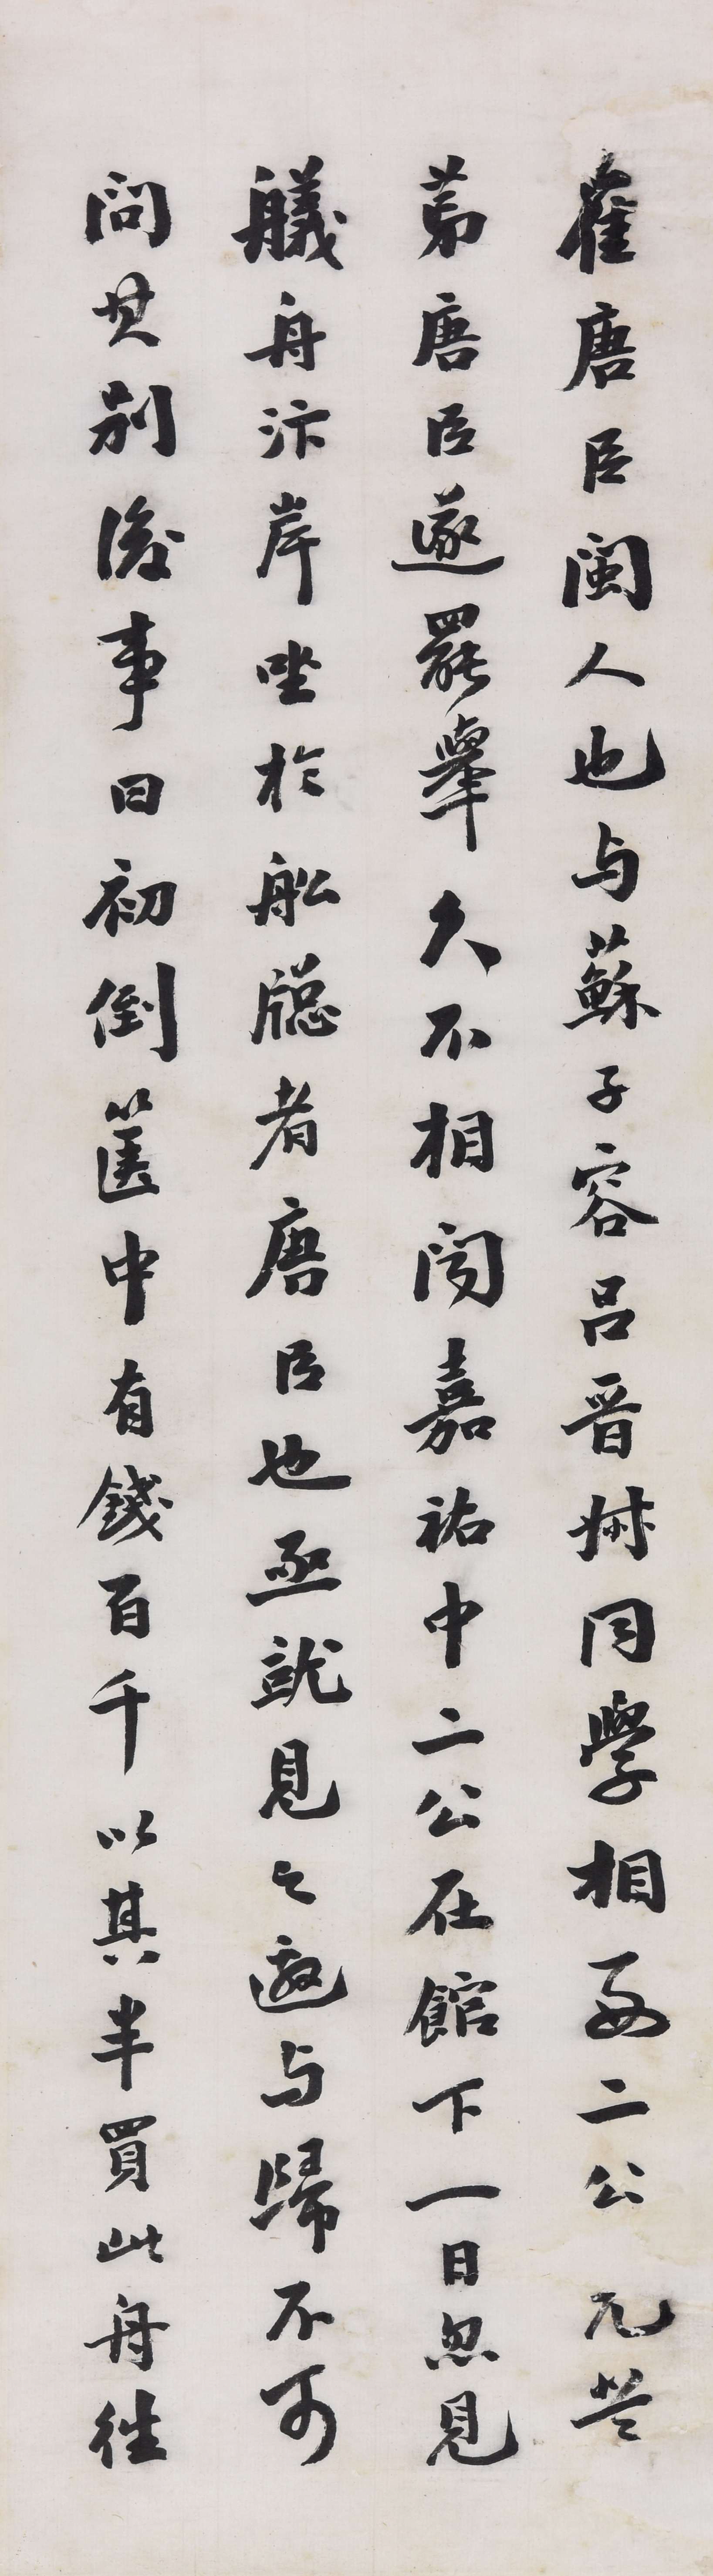 崔唐臣閩人也与蘇子容呂晉叔同學相好二公先登
第唐臣遂罷舉久不相聞嘉祐中二公在館下一日忽見
艤舟汴岸坐於船牕者唐臣也亟就見之邀与歸不可
問其別後事曰初倒篋中有錢百千以其半買此舟往